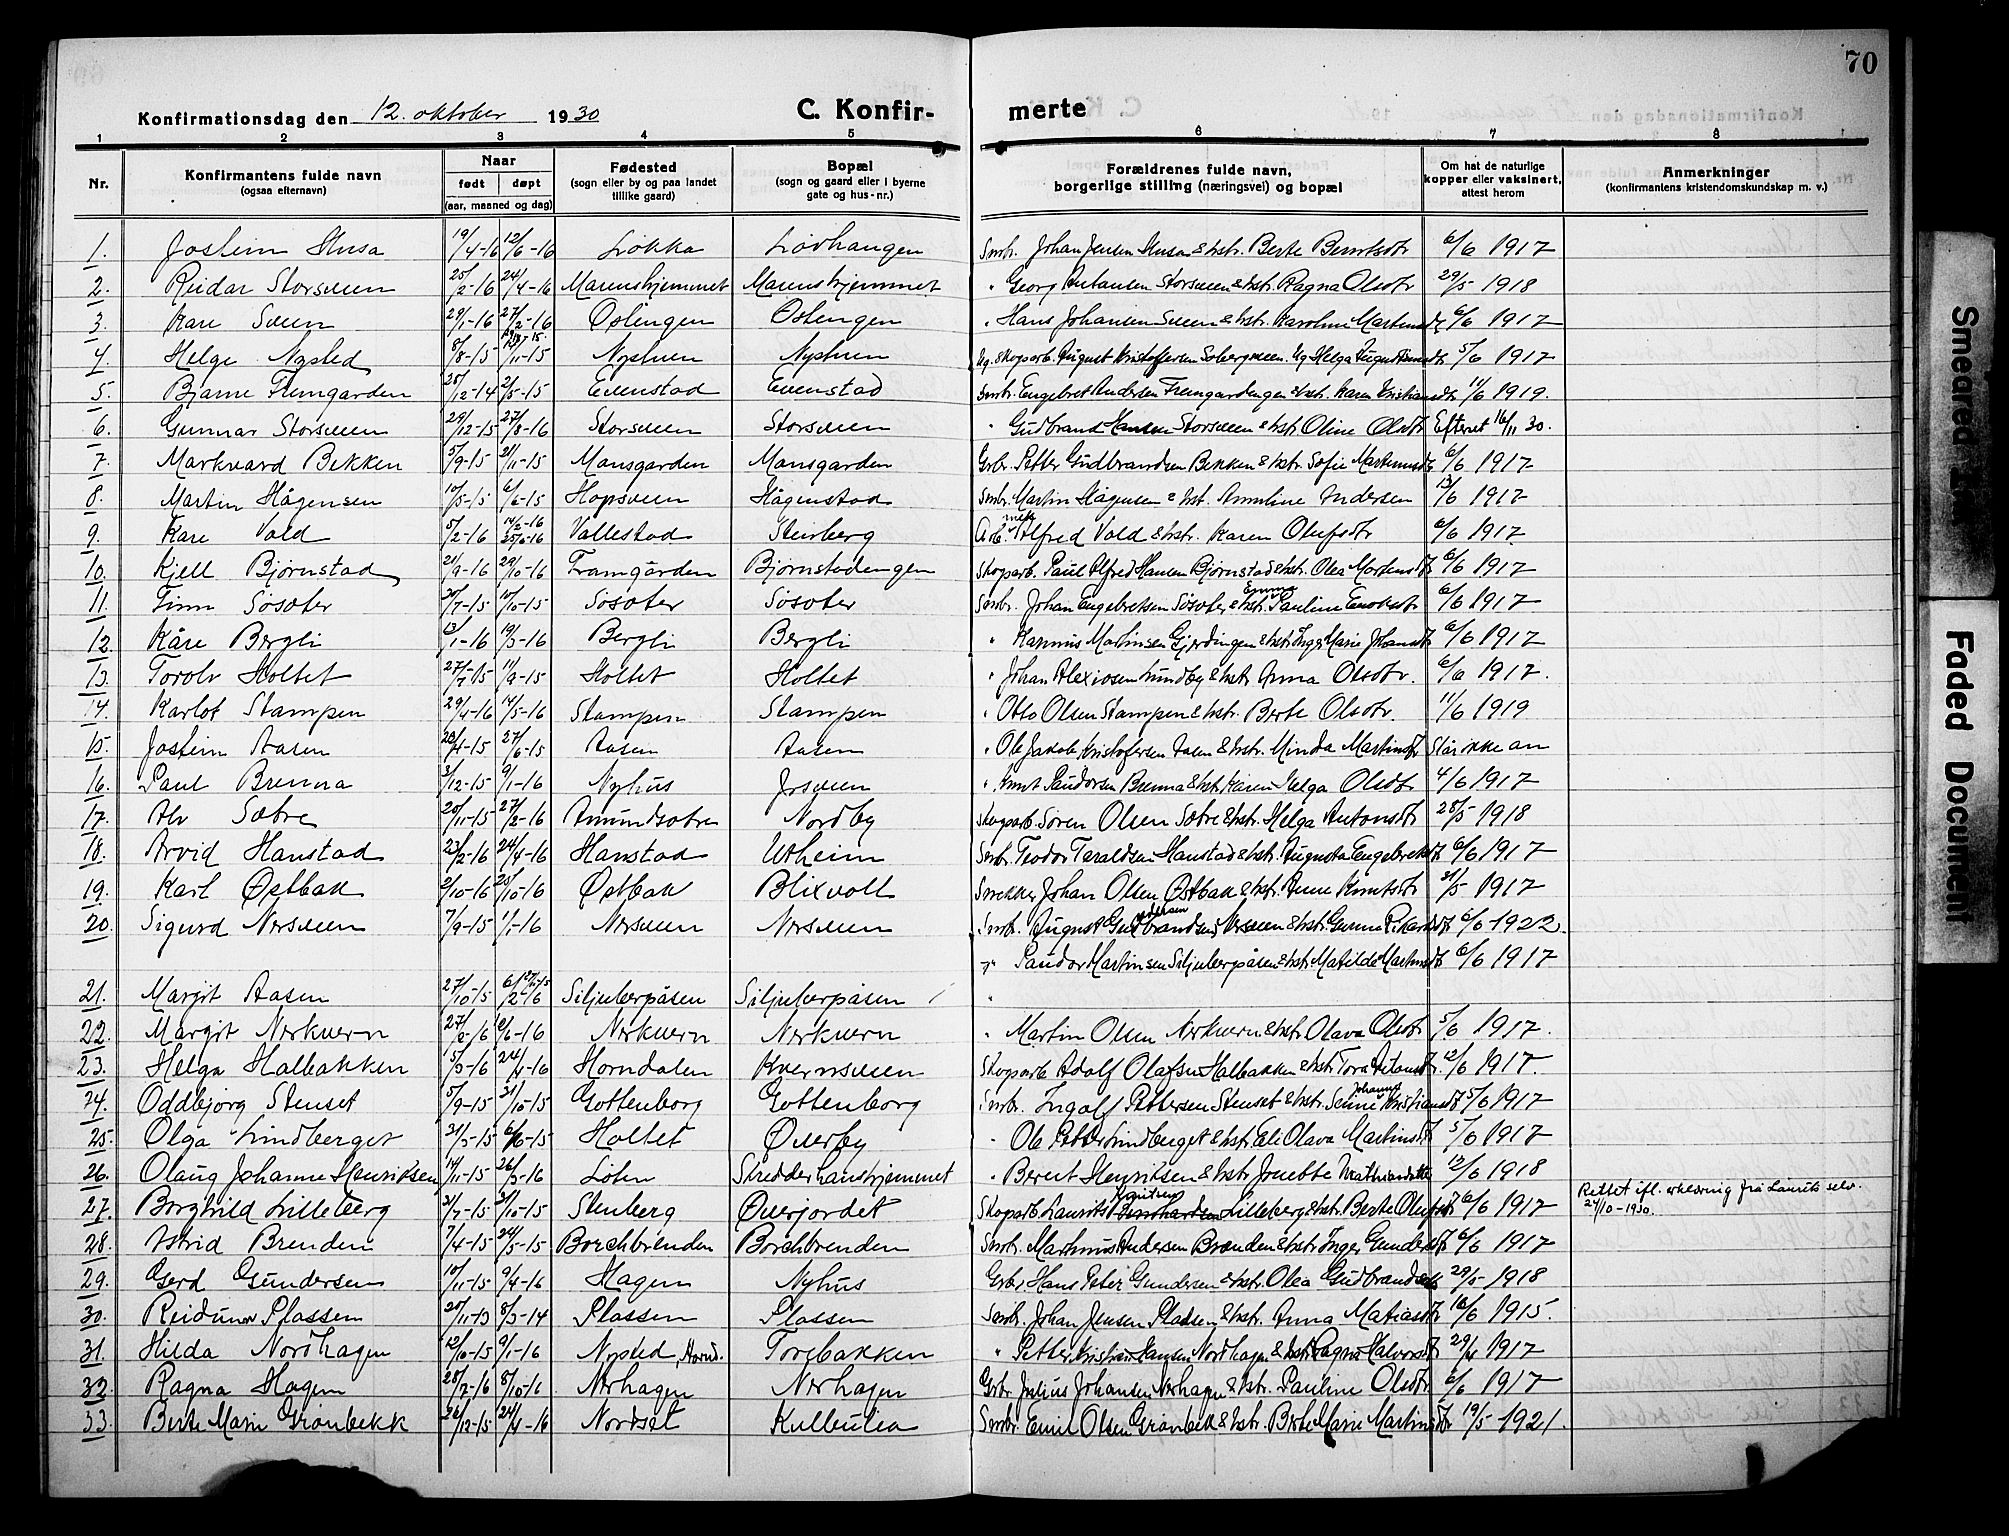 70
Konfirmationsdag den 12. oktober 1930 C. Konfir- merte
1 2 3 4 5 6 7 8
Nr. Konfirmantens fulde navn (ogsaa efternavn) Naar født døpt (aar, maaned og dag) Fødested (sogn eller by og paa landet tillike gaard) Bopæl (sogn og gaard eller i byerne gate og hus-nr.) Forældrenes fulde navn, borgerlige stilling (næringsvei) og bopæl Om hat de naturlige kopper eller vaksinert, attest herom Anmerkninger (konfirmantens kristendomskundskap m. v.)
1. Jostein Husa 19/4-16 12/6-16 Løkka Lövhaugen Smbr. Johan Jensen Husa & hstr. Berte Berntsdtr 6/6 1917
2. Reidar Storsveen 25/2-16 24/4-16 Marenshjemmet Marenshjemmet " Georg Antonsen Storsveen & hstr. Ragna Olsdtr 29/5 1918
3. Kåre Sveen 29/1-16 27/2-16 Østengen Østengen " Hans Johansen Sveen & hstr. Karoline Martinsdtr 6/6 1917
4. Helge Nysted 8/8-15 /11-15 Nytuen Nytuen Ug. skogarb. August Kristoffersen Sobergsveen. Ug Helga Augustinusdtr 5/6 1917
5. Bjarne Fremgarden 25/12-14 2/5-15 Evenstad Evenstad Smbr. Engebret Andersen Fremgardengen & hstr. Karen Kristiansdtr 11/6 1919.
6. Gunnar Storsveen 29/12-15 27/8-16 Storsveen Storsveen " Gudbrand Hansen Storsveen & hstr. Oline Olsdtr Efteret 16/11 30.
7. Markvard Bekken 5/9-15 21/11-15 Mansgarden Mansgarden Grbr. Petter Gudbrandsen Bekken & hstr. Sofie Martinusdtr 6/6 1917
8. Martin Hågensen 10/5-15 6/6-15 Hopsveen Hågenstad Smbr. Martin Hågensen & hst. Anneline Andersen 13/6 1917
9. Kåre Vold 5/2-16 25/6-16 Vallestad Stenberg Arb. Alfred Vold & hstr. Karen Olufsdtr 6/6 1917
10. Kjell Bjørnstad 21/9-16 29/10-16 Framgården Bjørnstadengen Skogarb. Paul Alfred Hansen Bjørnstad & hstr. Olea Martinsdtr 6/6 1917
11. Finn Søsæter 20/7-15 10/10-15 Søsæter Søsæter Smbr. Johan Engebretsen Søsæter & hstr. Emma Pauline Enoksdtr 6/6 1917
12. Kåre Bergli 13/1-16 19/3-16 Bergli Bergli " Rasmus Martinsen Gjerdingen & hstr. Inger Marie Johansdtr 6/6 1917
13. Torolv Holtet 27/7-15 11/9-15 Holtet Holtet " Johan Alexiosen Lundby & hstr. Anna Olsdtr. 6/6 1917.
14. Karlot Stampen 29/4-16 14/5-16 Stampen Stampen " Otto Olsen Stampen & hstr. Berte Olsdtr. 11/6 1919
15. Jostein Aasen 23/4-15 27/6-15 Aasen Aasen " Ole Jakob Kristofersen Aasen & hstr. Minda Martinsdtr Slår ikke an
16. Paul Brenna 3/12-15 9/1-16 Nyhus Jrsveen " Knut Paudorsen Brenna & hstr. Karen Helga Olsdtr 4/6 1917
17. Alv Sætre 20/11-15 27/2-16 Amundsætre Nordby Skogarb. Søren Olsen Sætre & hstr. Helga Antonsdtr 28/5 1918
18. Arvid Hanstad 23/2-16 24/4-16 Hanstad Utheim Smbr. Teodor Taraldsen Hanstad & hstr. Augusta Engebretsdtr 6/6 1917
19. Karl Østbak 2/10-16 25/10-16 Østbak Blixvolt Snekker Johan Olsen Østbak & hstr. Anne Knutsdtr 31/5 1917
20. Sigurd Nersveen 7/9-15 1/1-16 Nersveen Nersveen Smbr. August Gudbrandsen Nersveen & hstr. Gunne Rikardsdtr 6/6 1922.
" Paudor Martinsen Siljuberpåsen & hstr. Matilde Martinsdtr 6/6 1917
21. Margit Aasen 27/10-15 6/2-16 Siljuberpåsen Siljuberpåsen "
22. Margit Nerkvern 27/2-16 12/6-16 Nerkvern Nerkvern " Martin Olsen Nerkvern & hstr. Olava Olsdtr 5/6 1917.
23. Helga Halbakken 15/3-16 24/4-16 Horndalen Kvernsveen Skogarb. Adolf Olafsen Halbakken & hstr. Tora Antonsdtr. 12/6 1917.
24. Oddbjørg Stenset 5/9-15 31/10-15 Gottenborg Gottenborg Smbr. Ingolf Pettersen Stenset & hstr. Seline Johanne Kristiansdtr 5/6 1917
25. Olga Lindberget 21/3-15 6/6-15 Holtet Øverby " Ole Petter Lindberget & hstr. Eli Olava Martinsdtr 5/6 1917
26. Olaug Johanne Henriksen 14/11-15 26/3-16 Løten Skredderhanshjemmet " Bernt Henriksen & hstr. Jonette Mathiasdatter 12/6 1918
27. Borghild Lilleberg 31/7-15 31/10-15 Stenberg Øverjordet Skogarb. Laurits Lilleberg & hstr. Berte Olufsdtr 6/6 1917 Rettet ifl. erklæring fra Laurits selv. 24/10-1930.
28. Astrid Brenden 7/4-15 24/5-15 Borchbrenden Borchbrenden Smbr. Martinus Andersen Brænden & hstr. Inger Gundersdtr 6/6 1917
29. Gerd Gundersen 10/11-15 9/4-16 Hagen Nyhus Grbr. Hans Peter Gundersen & hstr. Olea Gudbrandsdtr 29/5 1918
30. Reidunn Plassen 20/11-13 8/3-14 Plassen Plassen Smbr. Johan Jensen Pladsen & hstr. Anna Matiasdtr 16/6 1915.
31. Hilda Nordhagen 12/10-15 9/1-16 Nysted, Hornd. Torgbakken " Petter Kristian Hansen Nordhagen & hstr. Ragna Halvorsdtr 29/6 1917
32. Ragna Hagen 28/7-16 8/10-16 Nerhagen Nerhagen Grbr. Julius Johansen Nerhagen & hstr. Pauline Olsdtr 6/6 1917
33. Berte Marie Grønbekk 26/12-15 24/4-16 Nordset Kulbulia Smbr. Emil Olsen Grønbekk & hstr. Berte Marie Martinsdtr 19/5 1921.
Faded Document